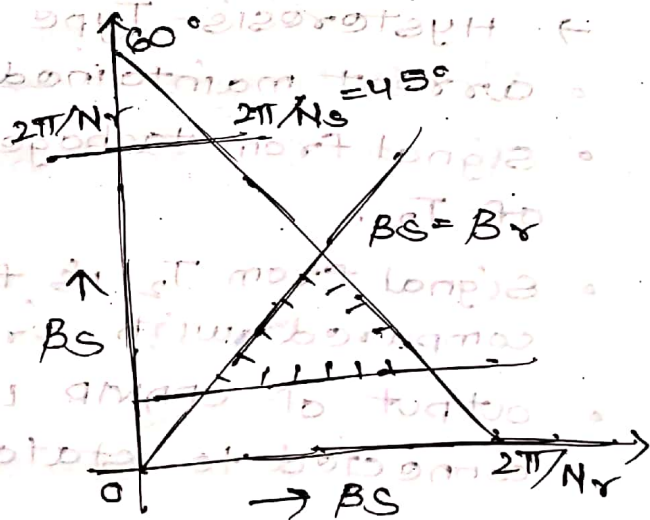 60°
2π/Nr 2π/Ns =45°
βs= βr
↑
βs
0 → βs 2π/Nr